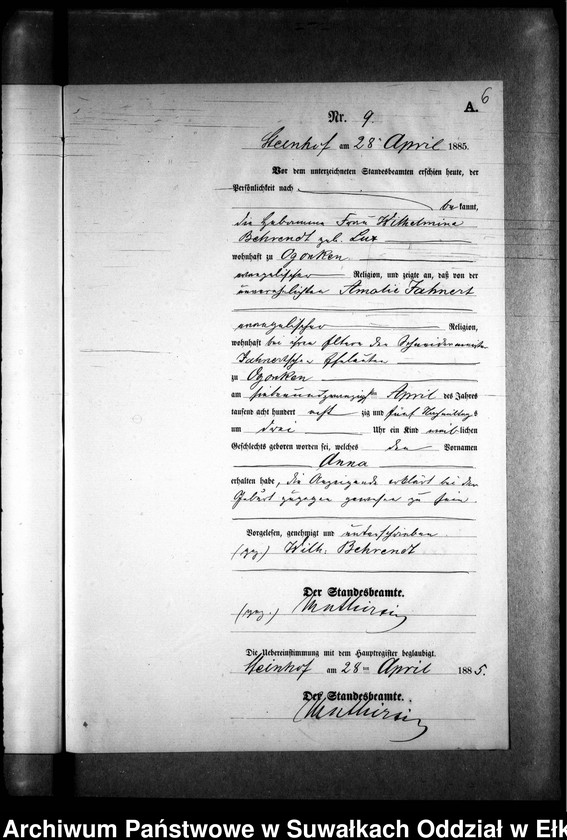 6
A.
Nr. 9.
Steinhof am 28 April 1885.
Vor dem unterzeichneten Standesbeamten erschien heute, der
Persönlichkeit nach
be kannt,
die Hebamme Frau Wilhelmina
Behrendt geb. Lux
wohnhaft zu Ogonken
evangelischer Religion, und zeigte an, daß von der
unverehelichten Amalie Jahnert
evangelischer Religion,
wohnhaft bei ihren Eltern den Schneidermeister
Jahnertschen Eheleuten
zu Ogonken
am siebenundzwanzigsten April des Jahres
tausend acht hundert acht zig und fünf Nachmittags
um drei Uhr ein Kind weib lichen
Geschlechts geboren worden sei, welches den Vornamen
Anna
erhalten habe, die Anzeigende erklärt bei der
Geburt zugegen gewesen zu sein.
Vorgelesen, genehmigt und unterschrieben
(gez) Wilh: Behrendt
Der Standesbeamte.
(gez.)
Die Uebereinstimmung mit dem Hauptregister beglaubigt.
Steinhof am 28 ten April 1885.
Der Standesbeamte.
Archiwum Państwowe w Suwałkach Oddział w Ełk